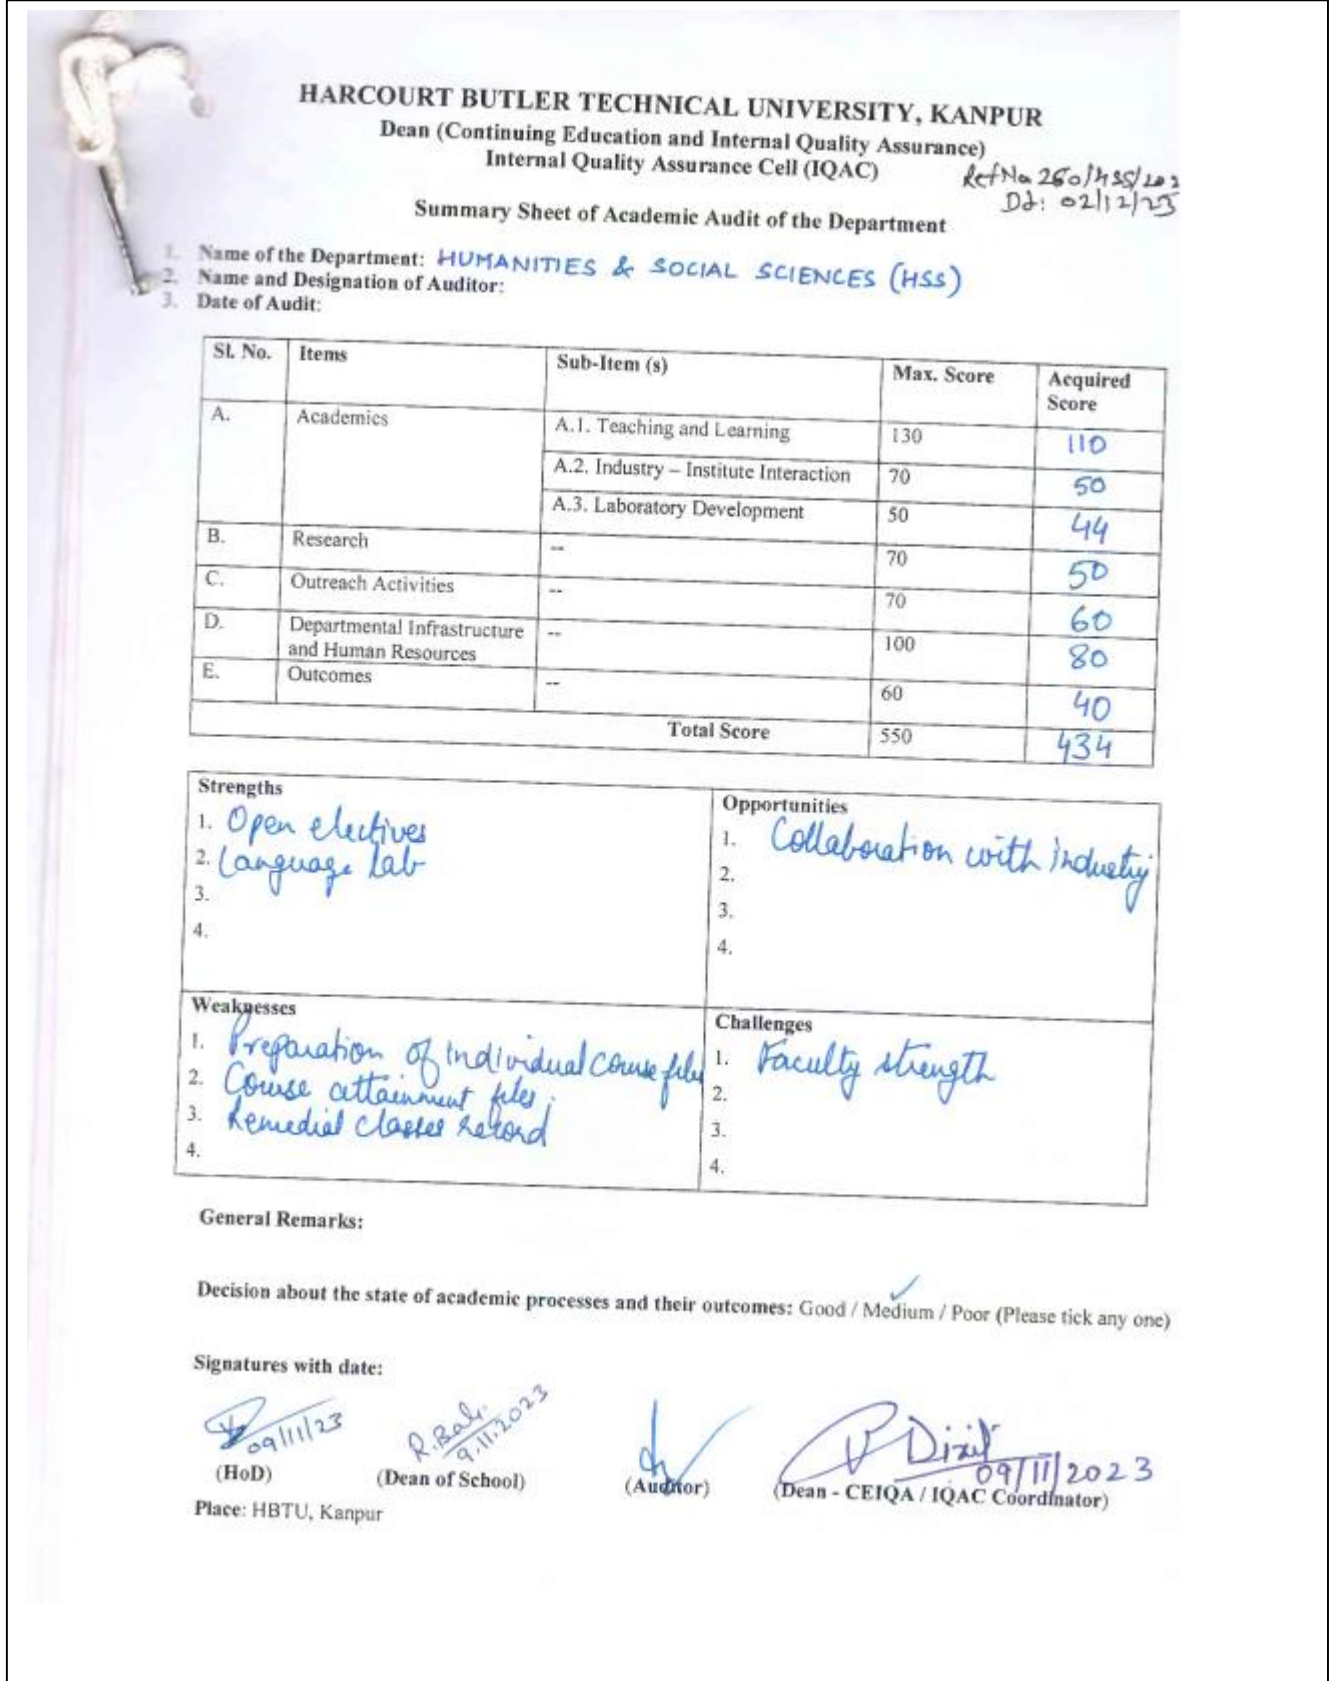 HARCOURT BUTLER TECHNICAL UNIVERSITY, KANPUR
Dean (Continuing Education and Internal Quality Assurance)
Internal Quality Assurance Cell (IQAC)
Ref No 260/HSS/202
Dt: 02/12/23
Summary Sheet of Academic Audit of the Department
1. Name of the Department: HUMANITIES & SOCIAL SCIENCES (HSS)
2. Name and Designation of Auditor:
3. Date of Audit:
Sl. No. Items Sub-Item (s) Max. Score Acquired Score
A. Academics A.1. Teaching and Learning 130 110
A.2. Industry – Institute Interaction 70 50
A.3. Laboratory Development 50 44
B. Research -- 70 50
C. Outreach Activities -- 70 60
D. Departmental Infrastructure and Human Resources -- 100 80
E. Outcomes -- 60 40
Total Score 550 434
Strengths
1. Open electives
2. Language Lab
3.
4.
Opportunities
1. Collaboration with industry
2.
3.
4.
Weaknesses
1. Preparation of individual course files
2. Course attainment files.
3. Remedial classes record
4.
Challenges
1. Faculty strength
2.
3.
4.
General Remarks:
Decision about the state of academic processes and their outcomes: Good / Medium / Poor (Please tick any one)
Signatures with date:
09/11/23
R.Bali
9.11.2023
Dixit
09/11/2023
(HoD) (Dean of School) (Auditor) (Dean - CEIQA / IQAC Coordinator)
Place: HBTU, Kanpur